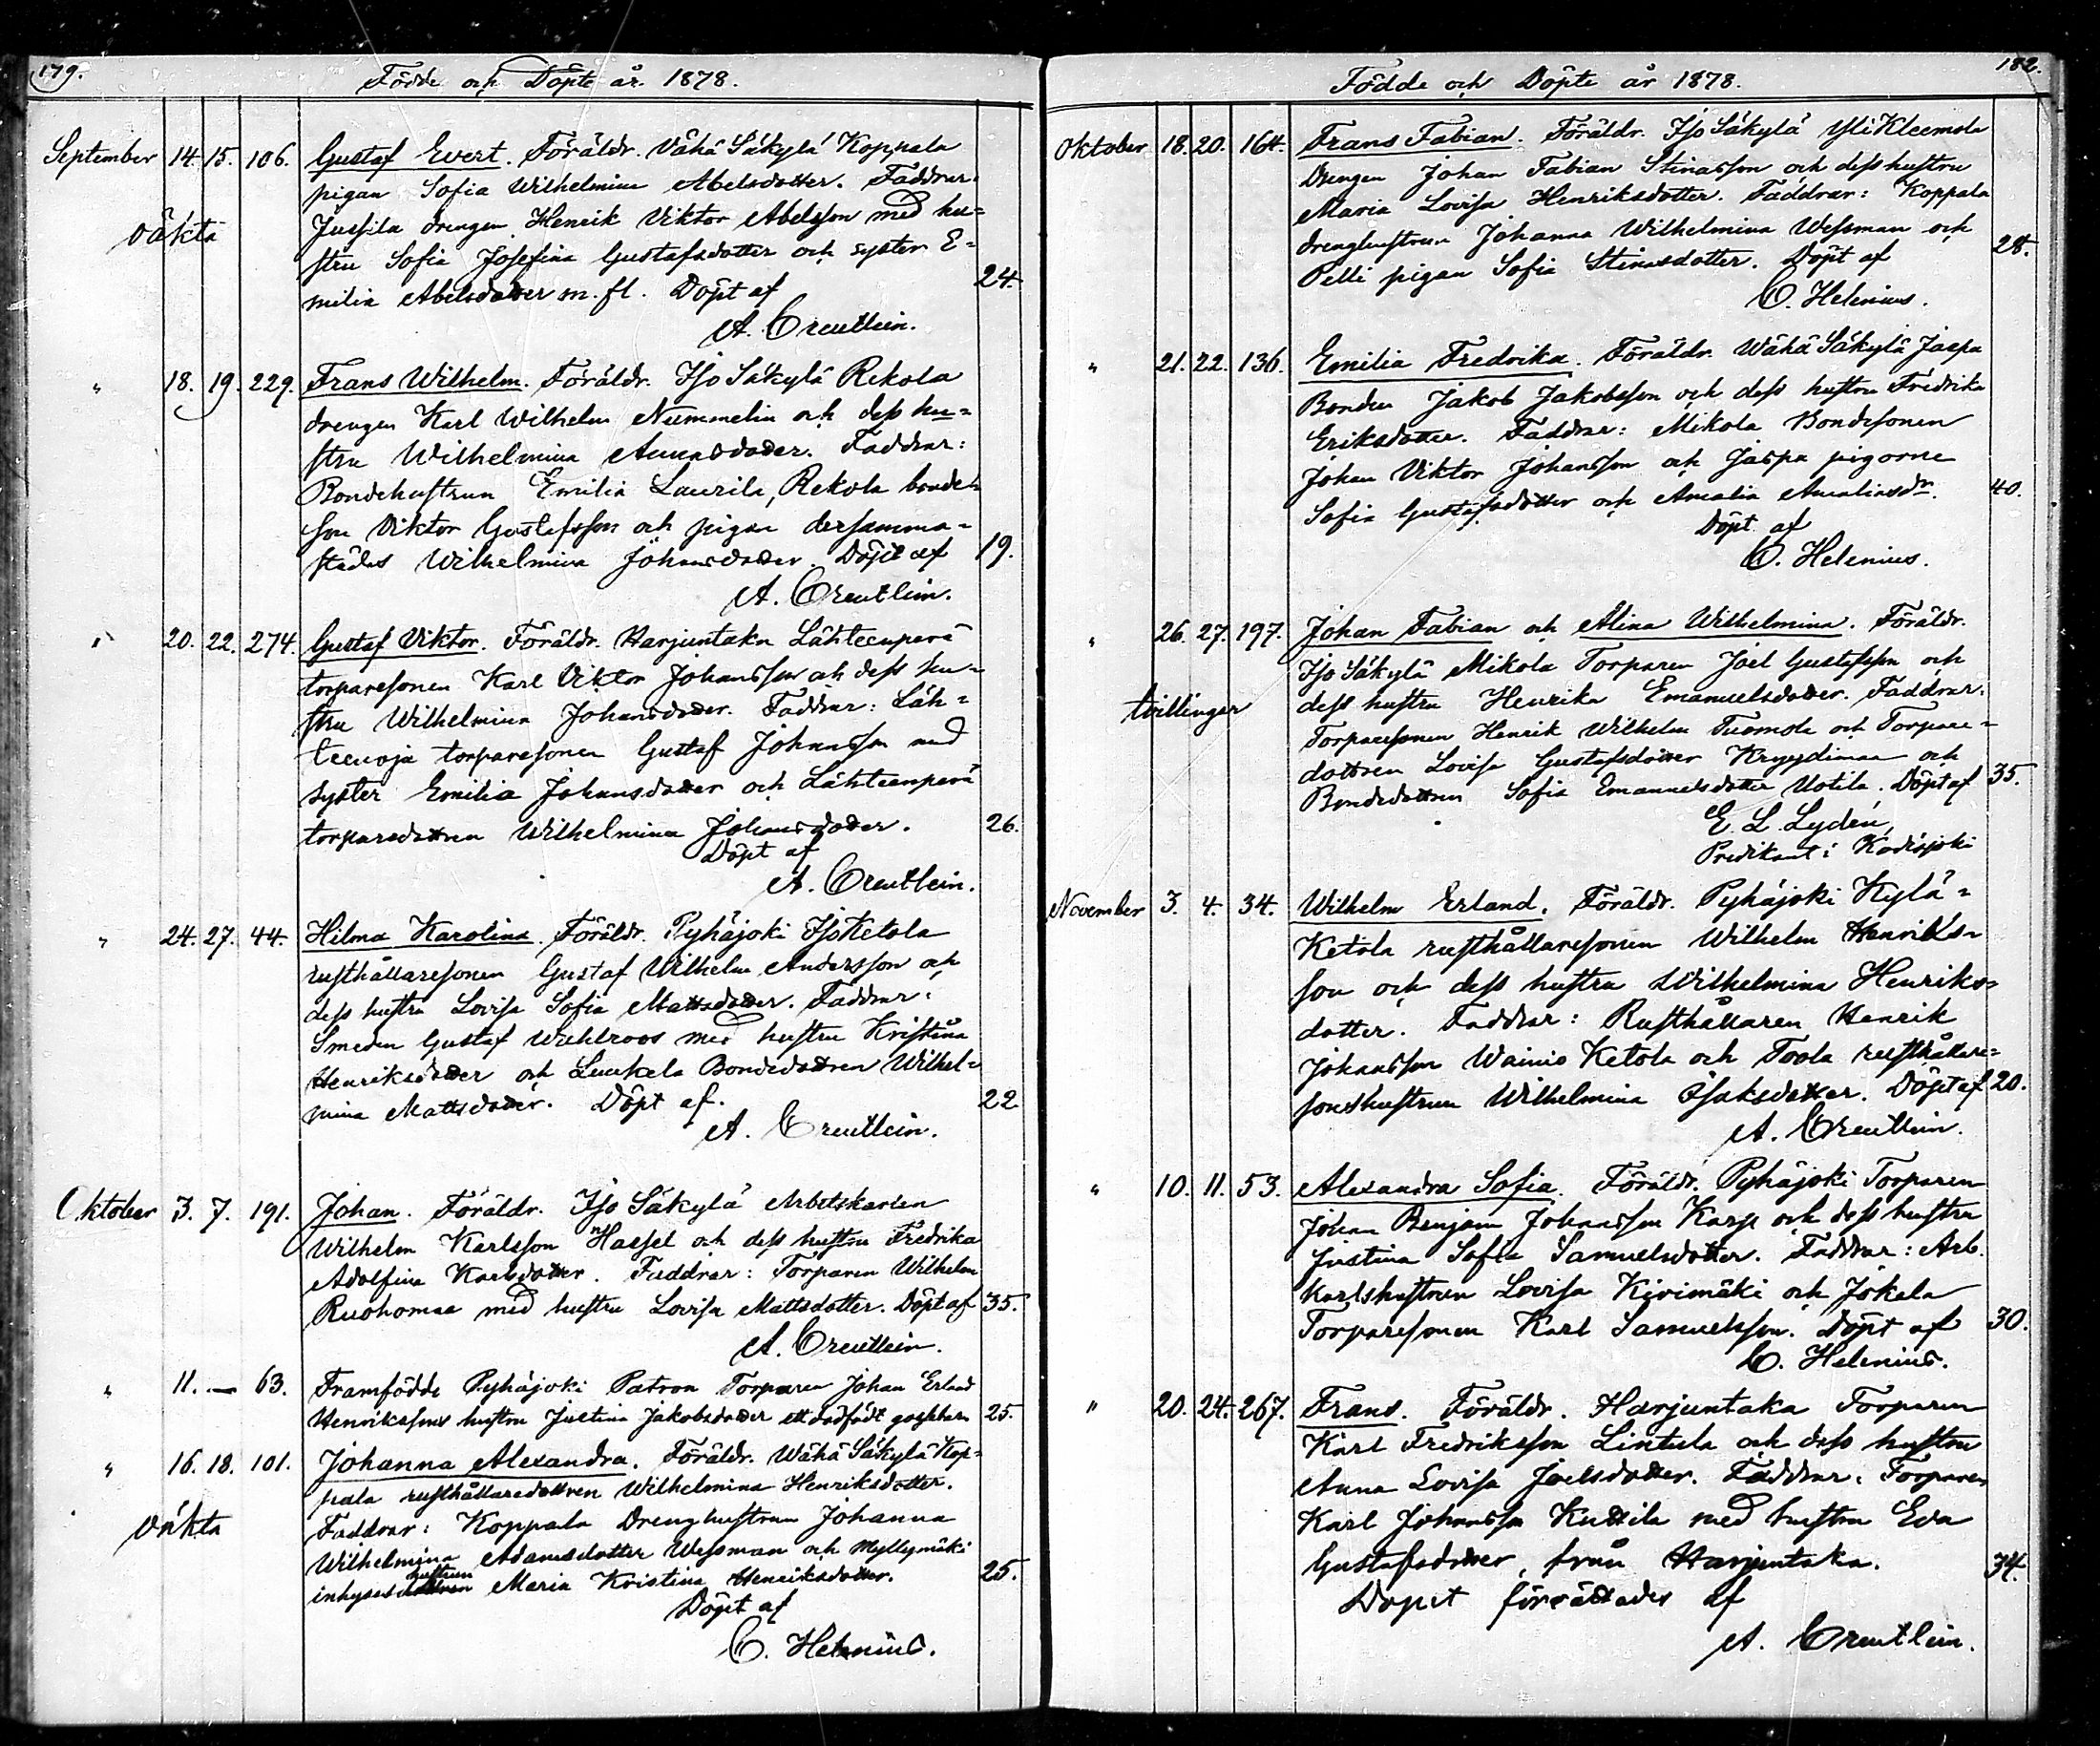 179.
Födde och Döpte år 1878.
September 14. 15. 106. Gustaf Evert. Föräldr. Vähä Säkylä Koppala
pigan Sofia Wilhelmina Abelsdotter. Faddrar:
Jussila drengen Henrik Viktor Abelsson med hu=
oäkta
stru Sofia Josefina Gustafsdotter och syster E=
milia Abelsdotter m. fl. Döpt af 24.
A. Creutlein.
" 18. 19. 229. Frans Wilhelm. Föräldr. Iso Säkylä Rekola
drengen Karl Wilhelm Nummelin och dess hu=
stru Wilhelmina Annasdotter. Faddrar:
Bondehustrun Emilia Laurila, Rekola bonde=
son Viktor Gustafsson och pigan dersamma=
städes Wilhelmina Johansdotter. Döpt af 19.
A. Creutlein.
" 20. 22. 274. Gustaf Viktor. Föräldr. Harjuntaka Lähteenperä
torparesonen Karl Viktor Johansson och dess hu=
stru Wilhelmina Johansdotter. Faddrar: Läh=
teenoja torparesonen Gustaf Johansson med
syster Emilia Johansdotter och Lähteenperä
torparedottren Wilhelmina Johansdotter. 26.
Döpt af
A. Creutlein.
" 24. 27. 44. Hilma Karolina. Föräldr. Pyhäjoki Iso Ketola
rusthållaresonen Gustaf Wilhelm Andersson och
dess hustru Lovisa Sofia Mattsdotter. Faddrar:
Smeden Gustaf Wahlroos med hustru Kristina
Henriksdotter och Luukela Bondedottren Wilhel=
mina Mattsdotter. Döpt af. 22.
A. Creutlein.
Oktober 3. 7. 191. Johan. Föräldr. Iso Säkylä Arbetskarlen
Wilhelm Karlsson Hassel och dess hustru Fredrika
Adolfina Karlsdotter. Faddrar: Torparen Wilhelm
Ruohomaa med hustru Lovisa Mattsdotter. Döpt af 35.
A. Creutlein.
" 11. — 63. Framfödde Pyhäjoki Patron Torparen Johan Erland
Henrikssons hustru Justina Jakobsdotter ett dödfödt gossebarn 25.
" 16. 18. 101. Johanna Alexandra. Föräldr. Wähä Säkylä Kop=
pala rusthållaredottren Wilhelmina Henriksdotter.
oäkta
Faddrar: Koppala Drenghustrun Johanna
Wilhelmina Adamsdotter Wessman och Myllymäki
hustrun
inhyses Maria Kristina Henriksdotter. 25.
Döpt af
C. Helenius.
182.
Födde och Döpte år 1878.
Oktober 18. 20. 164. Frans Fabian. Föräldr. Iso Säkylä Yli Kleemola
Drengen Johan Fabian Stinasson och dess hustru
Maria Lovisa Henriksdotter. Faddrar: Koppala
drenghustrun Johanna Wilhelmina Wessman och
Pelli pigan Sofia Stinasdotter. Döpt af 28.
C. Helenius.
" 21. 22. 136. Emilia Fredrika. Föräldr. Wähä Säkylä Jaspa
Bonden Jakob Jakobsson och dess hustru Fredrika
Eriksdotter. Faddrar: Mikola Bondesonen
Johan Viktor Johansson och Jaspa pigorne
Sofia Gustafsdotter och Amalia Amaliasdr. 40.
Döpt af
C. Helenius.
" 26. 27. 197. Johan Fabian och Alina Wilhelmina. Föräldr.
Iso Säkylä Mikola Torparen Joel Gustafsson och
dess hustru Henrika Emanuelsdotter. Faddrar:
tvillingar
Torparesonen Henrik Wilhelm Tuomola och Torpare=
dottren Lovisa Gustafsdotter och
Bondedottren Sofia Emanuelsdotter Uotila. Döpt af 35.
E. L. Lydén,
Predikant i Kodisjoki
November 3. 4. 34. Wilhelm Erland. Föräldr. Pyhäjoki Kylä=
Ketola rusthållaresonen Wilhelm Henriks=
son och dess hustru Wilhelmina Henriks=
dotter. Faddrar: Rusthållaren Henrik
Johansson Wainio Ketola och Toola rusthållare=
sonshustrun Wilhelmina Isaksdotter. Döpt af 20.
A. Creutlein.
" 10. 11. 53. Alexandra Sofia. Föräldr. Pyhäjoki Torparen
Johan Benjam Johansson Karp och dess hustru
Justina Sofia Samuelsdotter. Faddrar: Arb.
karlshustrun Lovisa Kivimäki och Jokela
Torparesonen Karl Samuelsson. Döpt af 30.
C. Helenius.
" 20. 24. 267. Frans. Föräldr. Harjuntaka Torparen
Karl Fredriksson Lintula och dess hustru
Anna Lovisa Joelsdotter. Faddrar: Torparen
Karl Johansson Kuttila med hustru Eva
Gustafsdotter, från Harjuntaka. 34.
Dopet förrättades af
A. Creutlein.